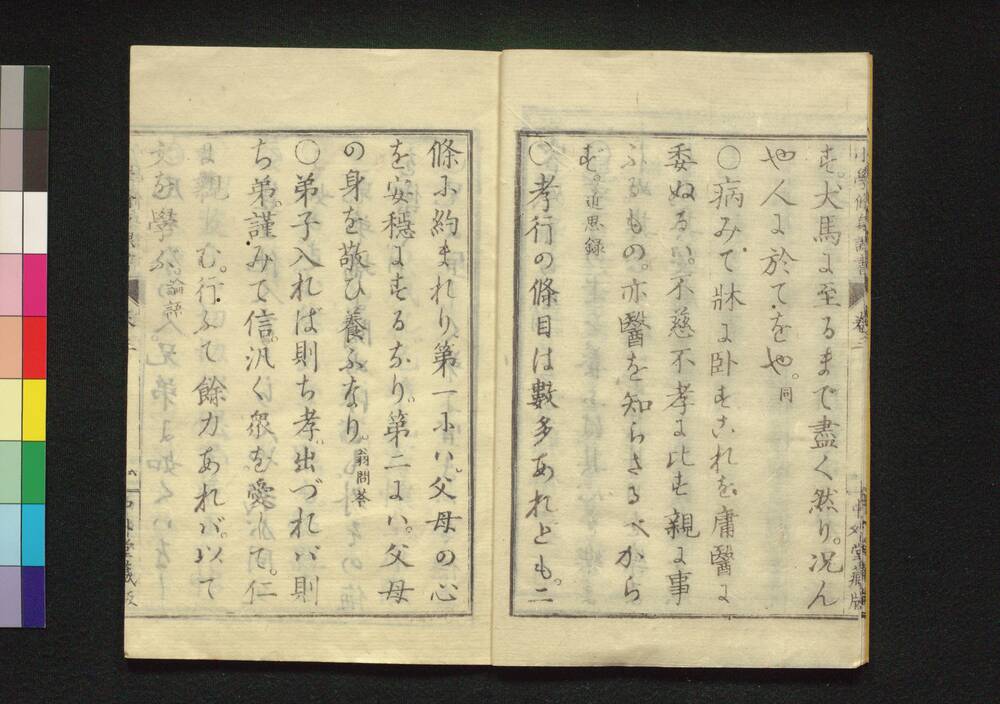 ず。犬馬に至るまで盡く然り。况ん
や人に於て・をや。同
○病みて牀に卧すこれを庸醫に
委ぬるハ。不慈不孝に比す親に事
ふるもの。亦醫を知らざるべから
ず。近思録
○孝行の條目は數多あれとも。二
條小約まれり第一小ハ。父母の心
を安穏にするなり。第二にハ。父母
の身を敬ひ養ふなり。翁問答
○弟子入れば則ち孝。出づれバ則
ち弟。謹・みて信。汎く衆を愛して。仁
に親しむ。行ふて餘力あれバ。以て
文を學ふ。論語
中外堂藏版